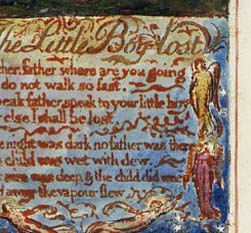 The Little Boy lost
ther, father where are you going
do not walk so fast.
peak father, speak to your little boy
else I shall be lost.
e night was dark no father was there
child was wet with dew.
mire was deep & the child did weep
away the vapour flew